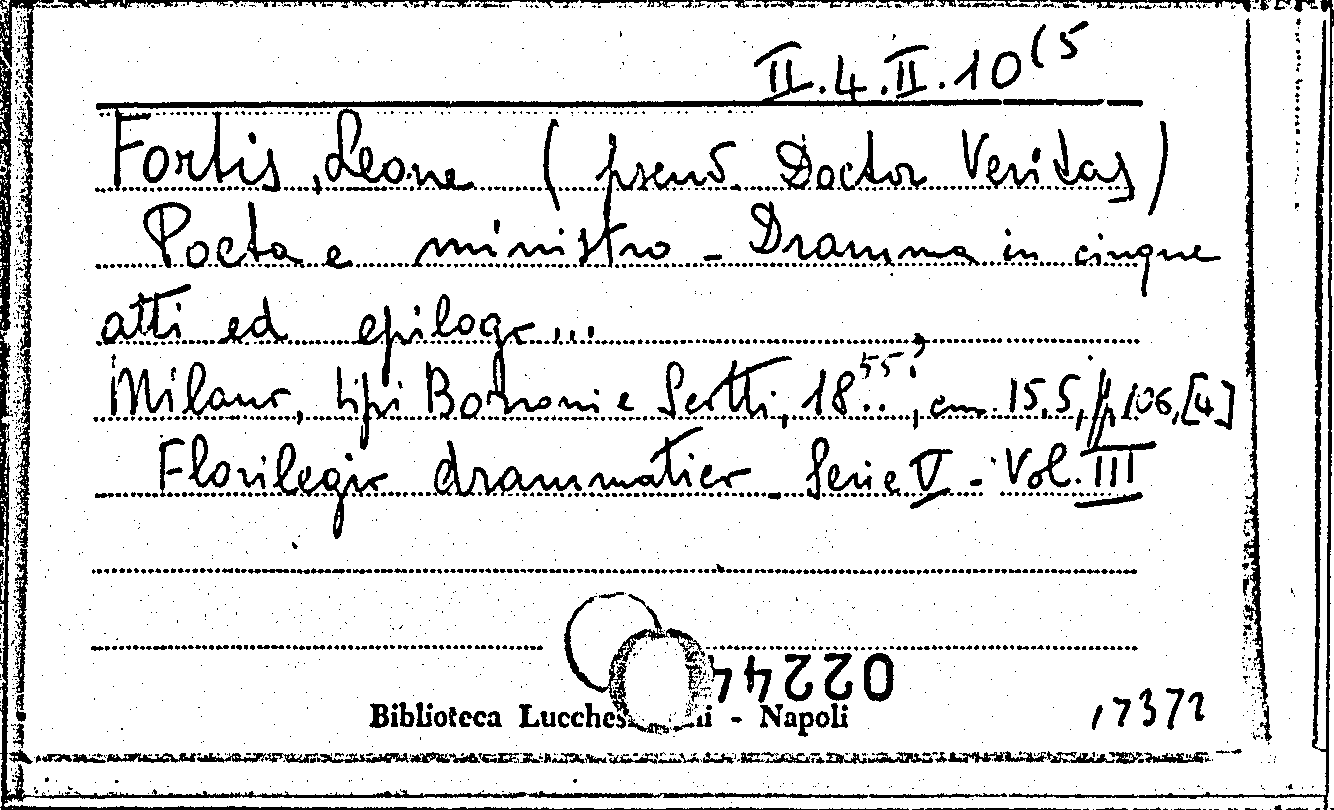 II.4.II.10(5
Fortis, Leone (pseud. Doctor Veritas)
Poeta e ministro - Dramma in cinque
atti ed epilogo...
Milano, tipi Borroni e Scotti, 18..55?, cm. 15,5, pp. 106, [4]
Florilegio drammatico - Serie V - Vol. III
02244
Biblioteca Napoli
17372